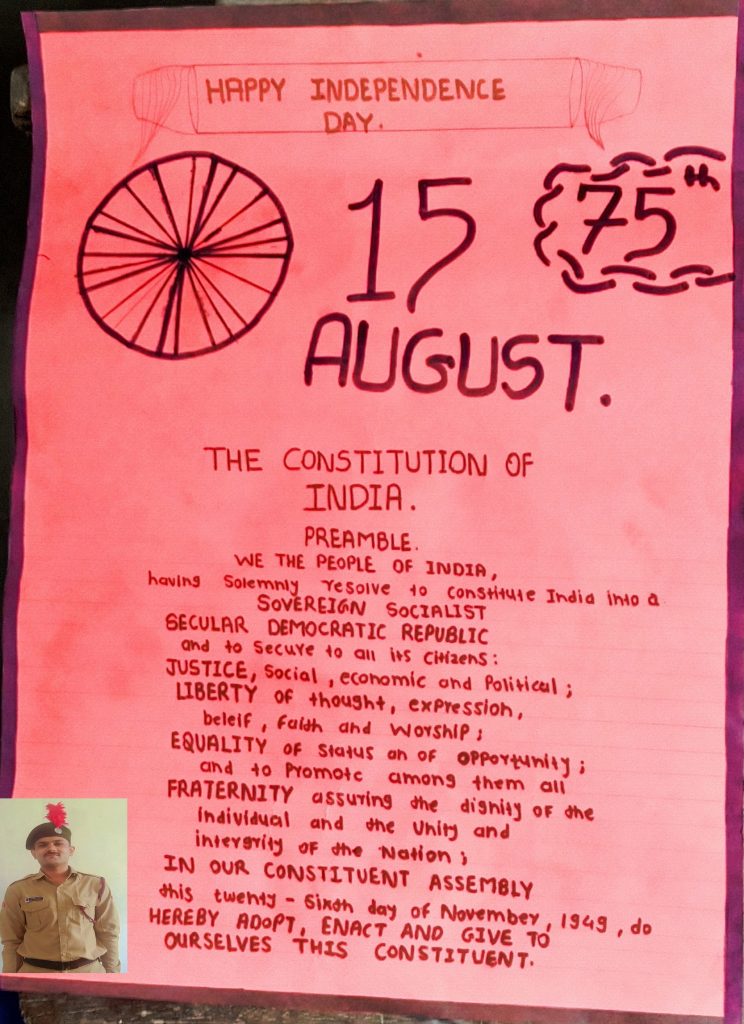 HAPPY INDEPENDENCE
DAY.
15
75th
AUGUST.
THE CONSTITUTION OF
INDIA.
PREAMBLE.
WE THE PEOPLE OF INDIA,
having Solemnly resolve to constitute India into a
SOVEREIGN SOCIALIST
SECULAR DEMOCRATIC REPUBLIC
and to secure to all its citizens:
JUSTICE, Social, economic and Political;
LIBERTY of thought, expression,
beleif, faith and worship;
EQUALITY of status an of opportunity;
and to Promote among them all
FRATERNITY assuring the dignity of the
individual and the unity and
intergrity of the Nation;
IN OUR CONSTITUENT ASSEMBLY
this twenty - sixth day of November, 1949, do
HEREBY ADOPT, ENACT AND GIVE TO
OURSELVES THIS CONSTITUENT.